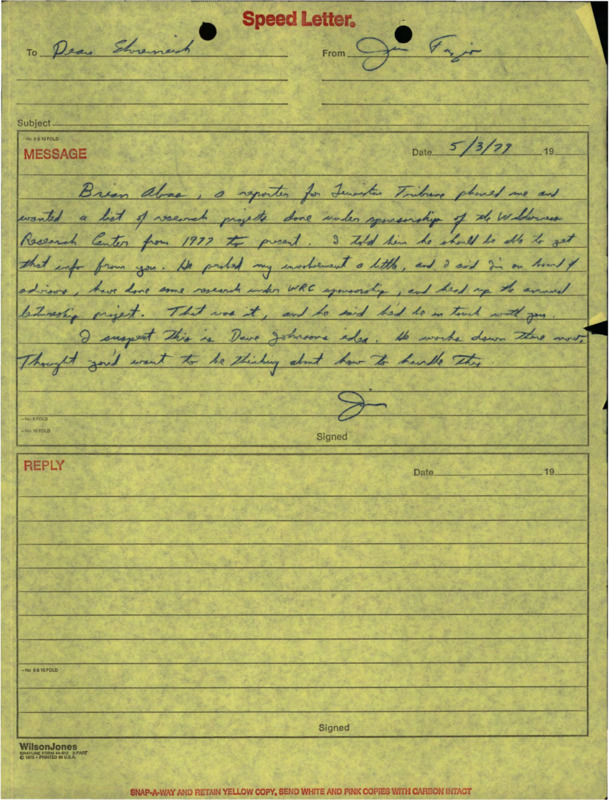 Speed Letter.
To Dean Ehrenreich From Jim Fazio
Subject
– No. 9 & 10 FOLD
MESSAGE Date 5/3/79 19
Brian Abas, a reporter for Lewiston Tribune phoned me and
wanted a list of research projects done under sponsorship of the Wilderness
Research Center from 1977 to present. I told him he should be able to get
that info from you. He probed my involvement a little, and I said I'm on board of
advisors, have done some research under WRC sponsorship, and head up the annual
lectureship project. That was it, and he said he'd be in touch with you.
I suspect this is Dave Johnsons idea. He works down there now.
Thought you'd want to be thinking about how to handle this.
Jim
– No. 9 FOLD
– No. 10 FOLD
Signed
REPLY Date 19
– No. 9 & 10 FOLD
Signed
WilsonJones
GRAYLINE FORM 44-912 3-PART
© 1976 • PRINTED IN U.S.A.
SNAP-A-WAY AND RETAIN YELLOW COPY, SEND WHITE AND PINK COPIES WITH CARBON INTACT